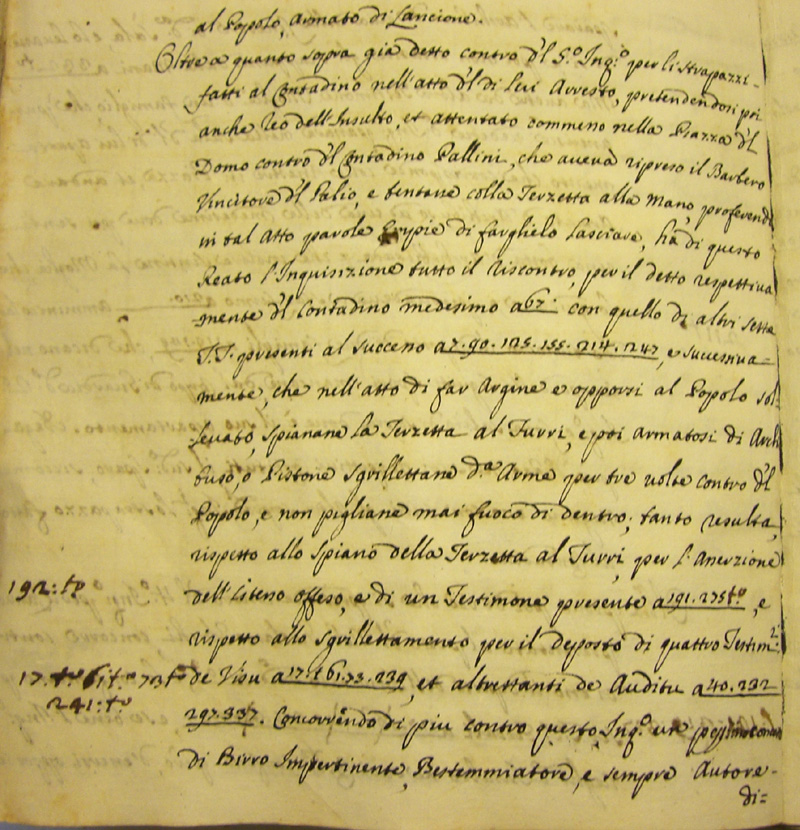 al Popolo, Armato di Lancione.
Oltre a quanto sopra già detto contro d'l S.º Inq.º per li strapazzi
fatti al Contadino nell'atto d'l di Lui Arresto, pretendendosi poi
anche Reo dell'Insulto, et attentato commesso nella Piazza d'l
Domo contro d'l Contadino Pallini, che aveva ripreso il Barbero
Vincitore d'l Palio, e tentane colla Terzetta alla Mano, proferendo
in tal Atto parole di farglielo Lasciare, hà di questo
Reato l'Inquisizione tutto il riscontro, per il detto respettiva
mente d'l Contadino medesimo a 67. con quello di altri sette
T.T. presenti al successo a 7. 90. 125. 155. 214. 247, e successiva=
mente, che nell'atto di far Argine e opporsi al Popolo sol
levato, spianane la Terzetta al Turri, e poi armatosi di Archi
buso, o Pistone sgrillettane d.ª Arme per tre volte contro d'l
Popolo, e non pigliane mai fuoco di dentro; tanto resulta,
rispetto allo spiano della Terzetta al Turri, per l'Aserzione
192: tº
dell'isteso offeso, e di un Testimone presente a 191. 275 tº, e
rispetto allo sgrillettamento, per il deposto di quattro Testim.ⁱ
17. tº 61 tº 73 tº
241: tº
de Visu a 17. 61. 73. 239, et altrettanti de Auditu a 40. 232
297. 337. Concorrendo di più contro questo Inq.º un
di Birro Impertinente, Bestemmiatore, e sempre Autore
di=